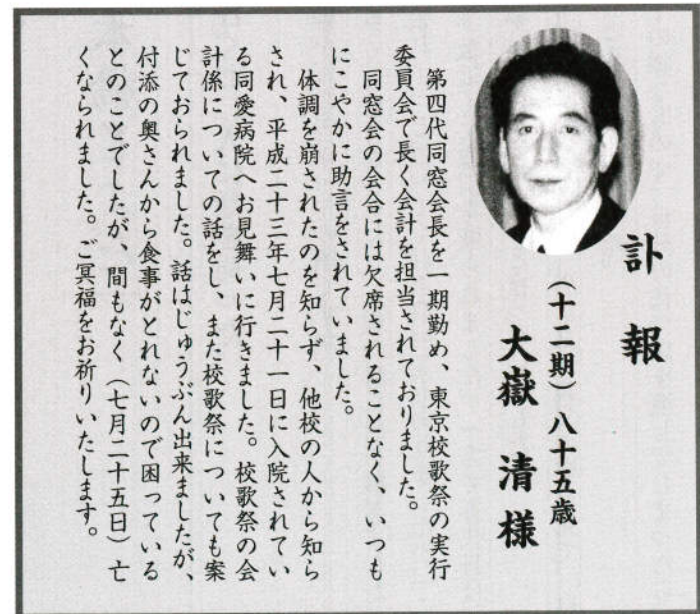 訃報
(十二期) 八十五歳
大嶽 清様
第四代同窓会長を一期勤め、東京校歌祭の実行
委員会で長く会計を担当されておりました。
同窓会の会合には欠席されることなく、いつも
にこやかに助言をされていました。
体調を崩されたのを知らず、他校の人から知ら
され、平成二十三年七月二十一日に入院されてい
る同愛病院へお見舞いに行きました。校歌祭の会
計係についての話をし、また校歌祭についても案
じておられました。話はじゅうぶん出来ましたが、
付添の奥さんから食事がとれないので困っている
とのことでしたが、間もなく(七月二十五日)亡
くなられました。ご冥福をお祈りいたします。